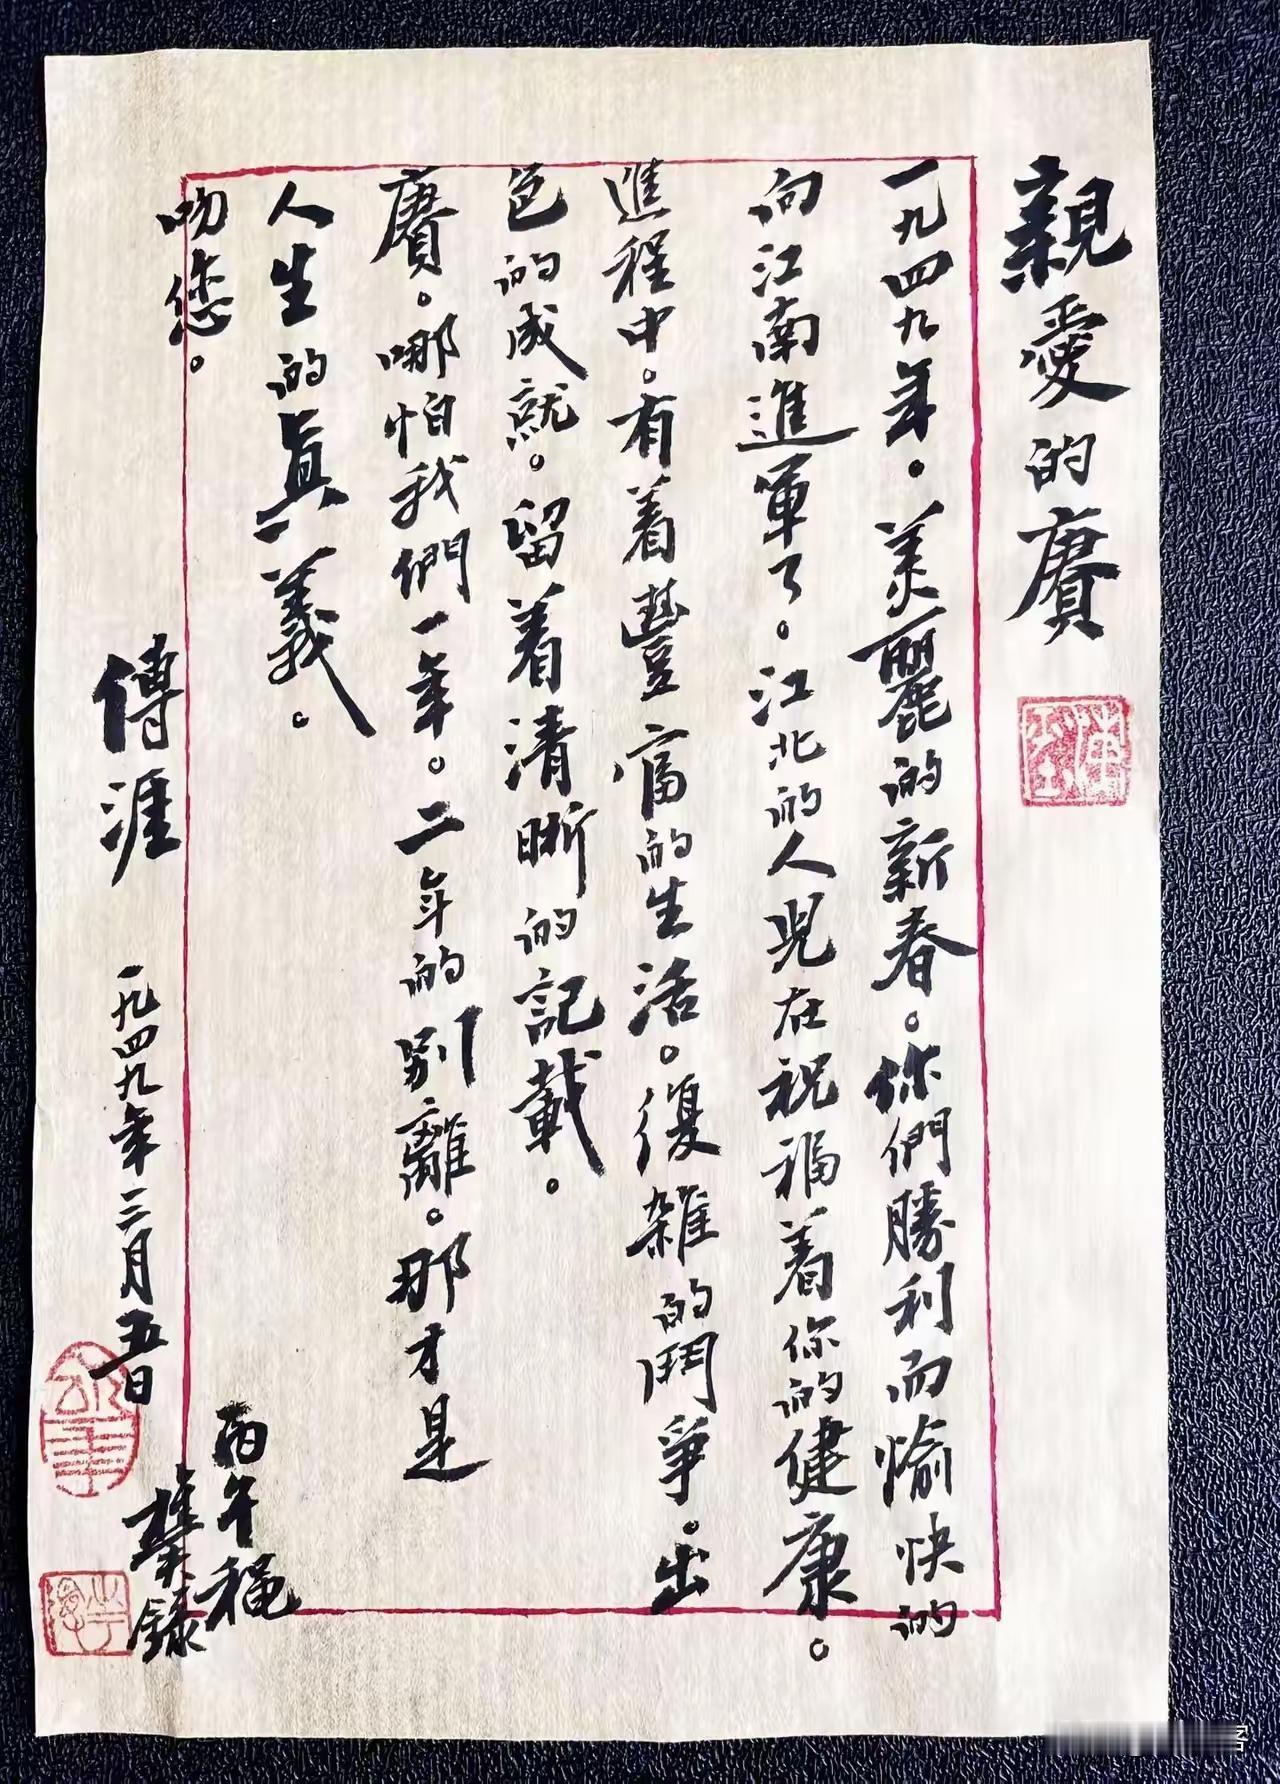 親愛的賡
一九四九年。美麗的新春。你們勝利而愉快的
向江南進軍了。江北的人兒在祝福着你的健康。
進程中。有着豐富的生活。復雜的鬥爭。出
色的成就。留着清晰的記載。
賡。哪怕我們一年。二年的別離。那才是
人生的真義。
吻您。
傅涯
一九四九年三月五日
丙午
龔錄